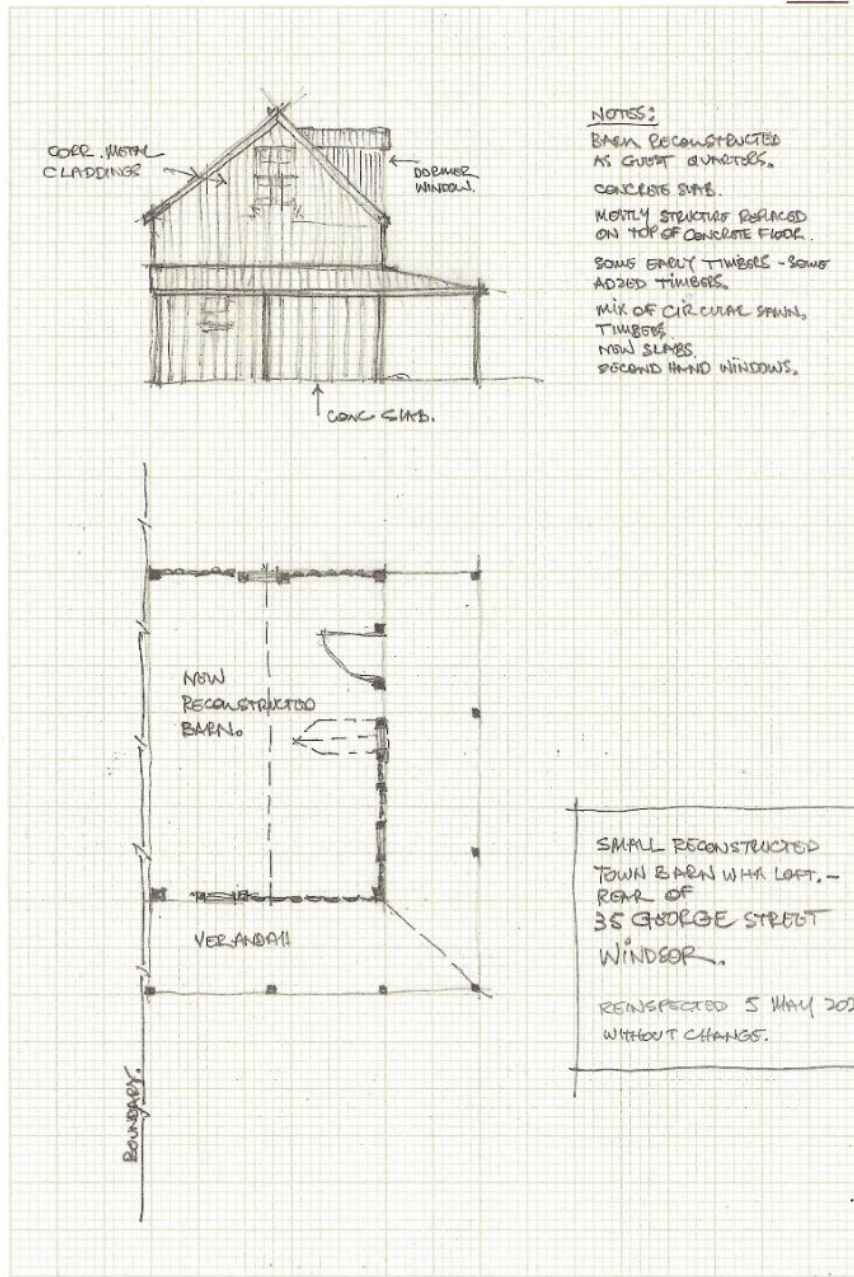 CORR. METAL
CLADDINGS
DORMER
WINDOW.
NOTES:
BARN RECONSTRUCTED
AS GUEST QUARTERS.
CONCRETE SLAB.
MOSTLY STRUCTURE REPLACED
ON TOP OF CONCRETE FLOOR.
SOME EARLY TIMBERS - SOME
ADDED TIMBERS.
MIX OF CIRCULAR SAWN,
TIMBERS.
NEW SLABS.
SECOND HAND WINDOWS.
CONC SLAB.
NEW
RECONSTRUCTED
BARN.
VERANDAH
BOUNDARY.
SMALL RECONSTRUCTED
TOWN BARN WITH LOFT. -
REAR OF
35 GEORGE STREET
WINDSOR.
REINSPECTED 5 MAY 202
WITHOUT CHANGE.